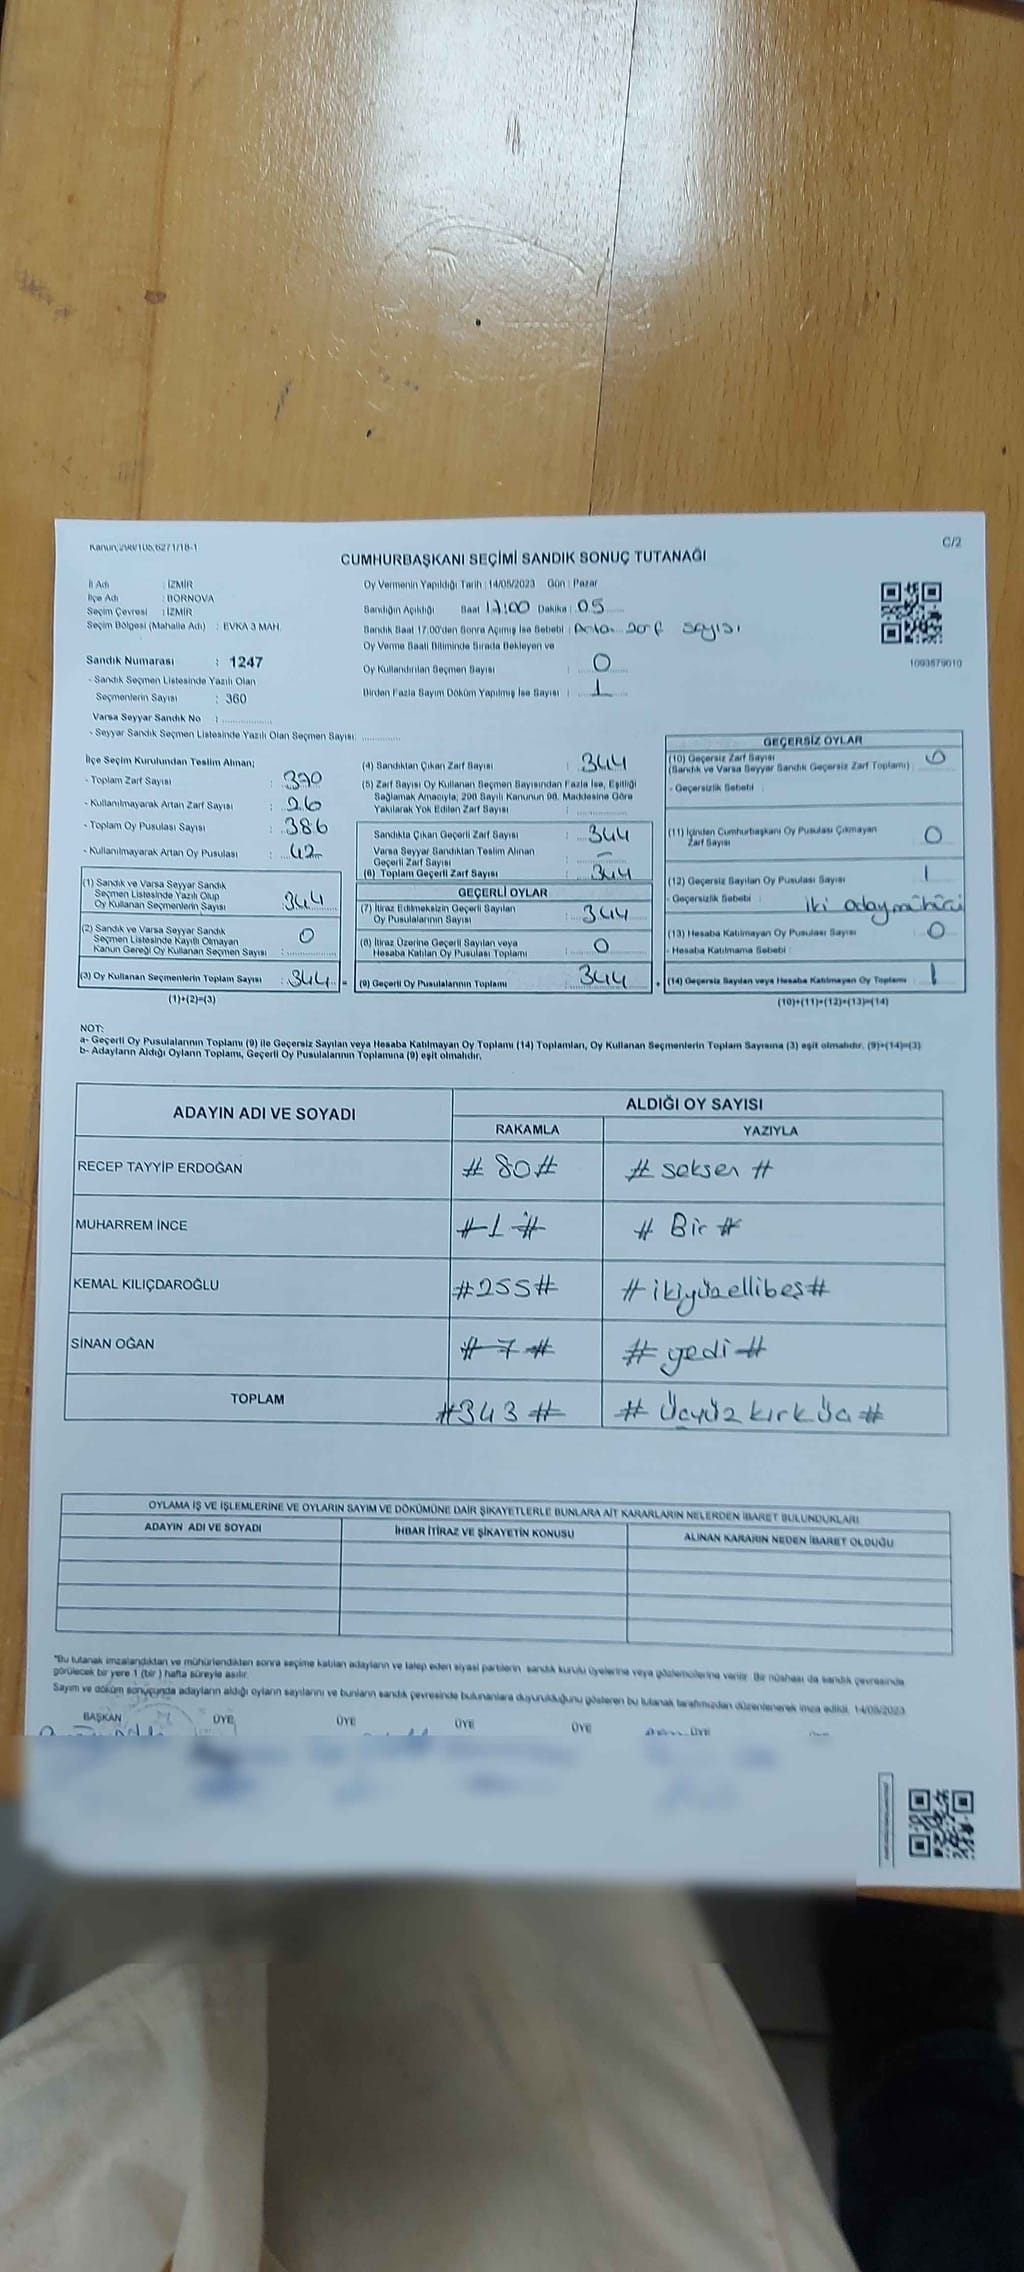 Kanun:298/105,6271/18-1
C/2
CUMHURBAŞKANI SEÇİMİ SANDIK SONUÇ TUTANAĞI
İl Adı : İZMİR
İlçe Adı : BORNOVA
Seçim Çevresi : İZMİR
Seçim Bölgesi (Mahalle Adı) : EVKA 3 MAH.
Oy Vermenin Yapıldığı Tarih : 14/05/2023 Gün : Pazar
Sandığın Açıldığı Saat 17:00 Dakika : 05
Sandık Saat 17:00'den Sonra Açılmış İse Sebebi : sayısı
Oy Verme Saati Bitiminde Sırada Bekleyen ve
Oy Kullandırılan Seçmen Sayısı : 0
Birden Fazla Sayım Döküm Yapılmış İse Sayısı : 1
1093579010
Sandık Numarası : 1247
- Sandık Seçmen Listesinde Yazılı Olan
Seçmenlerin Sayısı : 360
Varsa Seyyar Sandık No :
- Seyyar Sandık Seçmen Listesinde Yazılı Olan Seçmen Sayısı:
İlçe Seçim Kurulundan Teslim Alınan;
- Toplam Zarf Sayısı : 370
- Kullanılmayarak Artan Zarf Sayısı : 26
- Toplam Oy Pusulası Sayısı : 386
- Kullanılmayarak Artan Oy Pusulası : 42
(1) Sandık ve Varsa Seyyar Sandık
Seçmen Listesinde Yazılı Olup
Oy Kullanan Seçmenlerin Sayısı : 344
(2) Sandık ve Varsa Seyyar Sandık
Seçmen Listesinde Kayıtlı Olmayan
Kanun Gereği Oy Kullanan Seçmen Sayısı : 0
(3) Oy Kullanan Seçmenlerin Toplam Sayısı : 344
(1)+(2)=(3)
(4) Sandıktan Çıkan Zarf Sayısı : 344
(5) Zarf Sayısı Oy Kullanan Seçmen Sayısından Fazla İse, Eşitliği
Sağlamak Amacıyla; 298 Sayılı Kanunun 98. Maddesine Göre
Yakılarak Yok Edilen Zarf Sayısı :
Sandıkta Çıkan Geçerli Zarf Sayısı : 344
Varsa Seyyar Sandıktan Teslim Alınan
Geçerli Zarf Sayısı : -
(6) Toplam Geçerli Zarf Sayısı : 344
GEÇERLİ OYLAR
(7) İtiraz Edilmeksizin Geçerli Sayılan
Oy Pusulalarının Sayısı : 344
(8) İtiraz Üzerine Geçerli Sayılan veya
Hesaba Katılan Oy Pusulası Toplamı : 0
(9) Geçerli Oy Pusulalarının Toplamı : 344
GEÇERSİZ OYLAR
(10) Geçersiz Zarf Sayısı
(Sandık ve Varsa Seyyar Sandık Geçersiz Zarf Toplamı) : 0
- Geçersizlik Sebebi :
(11) İçinden Cumhurbaşkanı Oy Pusulası Çıkmayan
Zarf Sayısı : 0
(12) Geçersiz Sayılan Oy Pusulası Sayısı : 1
- Geçersizlik Sebebi : iki aday mühürü
(13) Hesaba Katılmayan Oy Pusulası Sayısı : 0
- Hesaba Katılmama Sebebi :
(14) Geçersiz Sayılan veya Hesaba Katılmayan Oy Toplamı : 1
(10)+(11)+(12)+(13)=(14)
NOT:
a- Geçerli Oy Pusulalarının Toplamı (9) ile Geçersiz Sayılan veya Hesaba Katılmayan Oy Toplamı (14) Toplamları, Oy Kullanan Seçmenlerin Toplam Sayısına (3) eşit olmalıdır. (9)+(14)=(3)
b- Adayların Aldığı Oyların Toplamı, Geçerli Oy Pusulalarının Toplamına (9) eşit olmalıdır.
ADAYIN ADI VE SOYADI ALDIĞI OY SAYISI
RAKAMLA YAZIYLA
RECEP TAYYİP ERDOĞAN # 80 # # seksen #
MUHARREM İNCE # 1 # # Bir #
KEMAL KILIÇDAROĞLU #255# #ikiyüzellibeş#
SİNAN OĞAN # 7 # # yedi #
TOPLAM #343 # # Üçyüzkırküç #
OYLAMA İŞ VE İŞLEMLERİNE VE OYLARIN SAYIM VE DÖKÜMÜNE DAİR ŞİKAYETLERLE BUNLARA AİT KARARLARIN NELERDEN İBARET BULUNDUKLARI
ADAYIN ADI VE SOYADI İHBAR İTİRAZ VE ŞİKAYETİN KONUSU ALINAN KARARIN NEDEN İBARET OLDUĞU
"Bu tutanak imzalandıktan ve mühürlendikten sonra seçime katılan adayların ve talep eden siyasi partilerin sandık kurulu üyelerine veya gözlemcilerine verilir. Bir nüshası da sandık çevresinde
görülecek bir yere 1 (bir) hafta süreyle asılır.
Sayım ve döküm sonuçunda adayların aldığı oyların sayılarını ve bunların sandık çevresinde bulunanlara duyurulduğunu gösteren bu tutanak tarafımızdan düzenlenerek imza edildi. 14/05/2023
BAŞKAN ÜYE ÜYE ÜYE ÜYE ÜYE